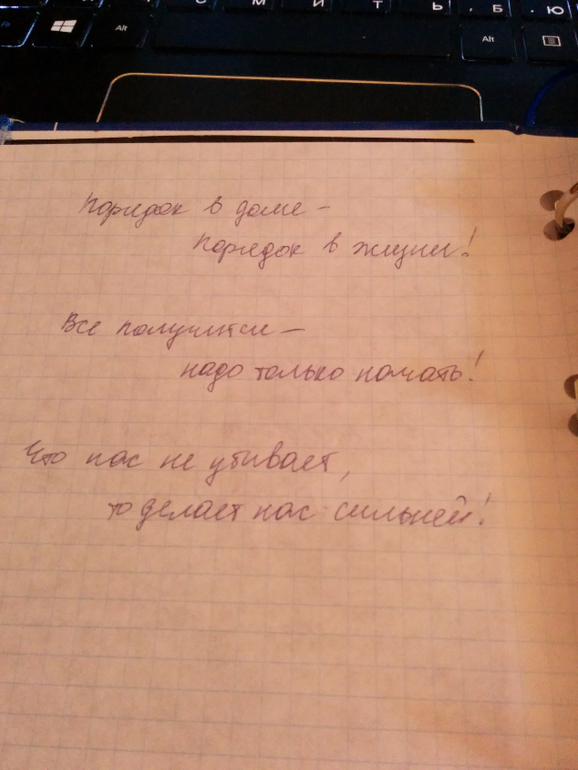 М И Т Ь Б Ю
Alt Alt
Порядок в доме –
порядок в жизни!
Все получится –
надо только начать!
Что нас не убивает,
то делает нас сильней!